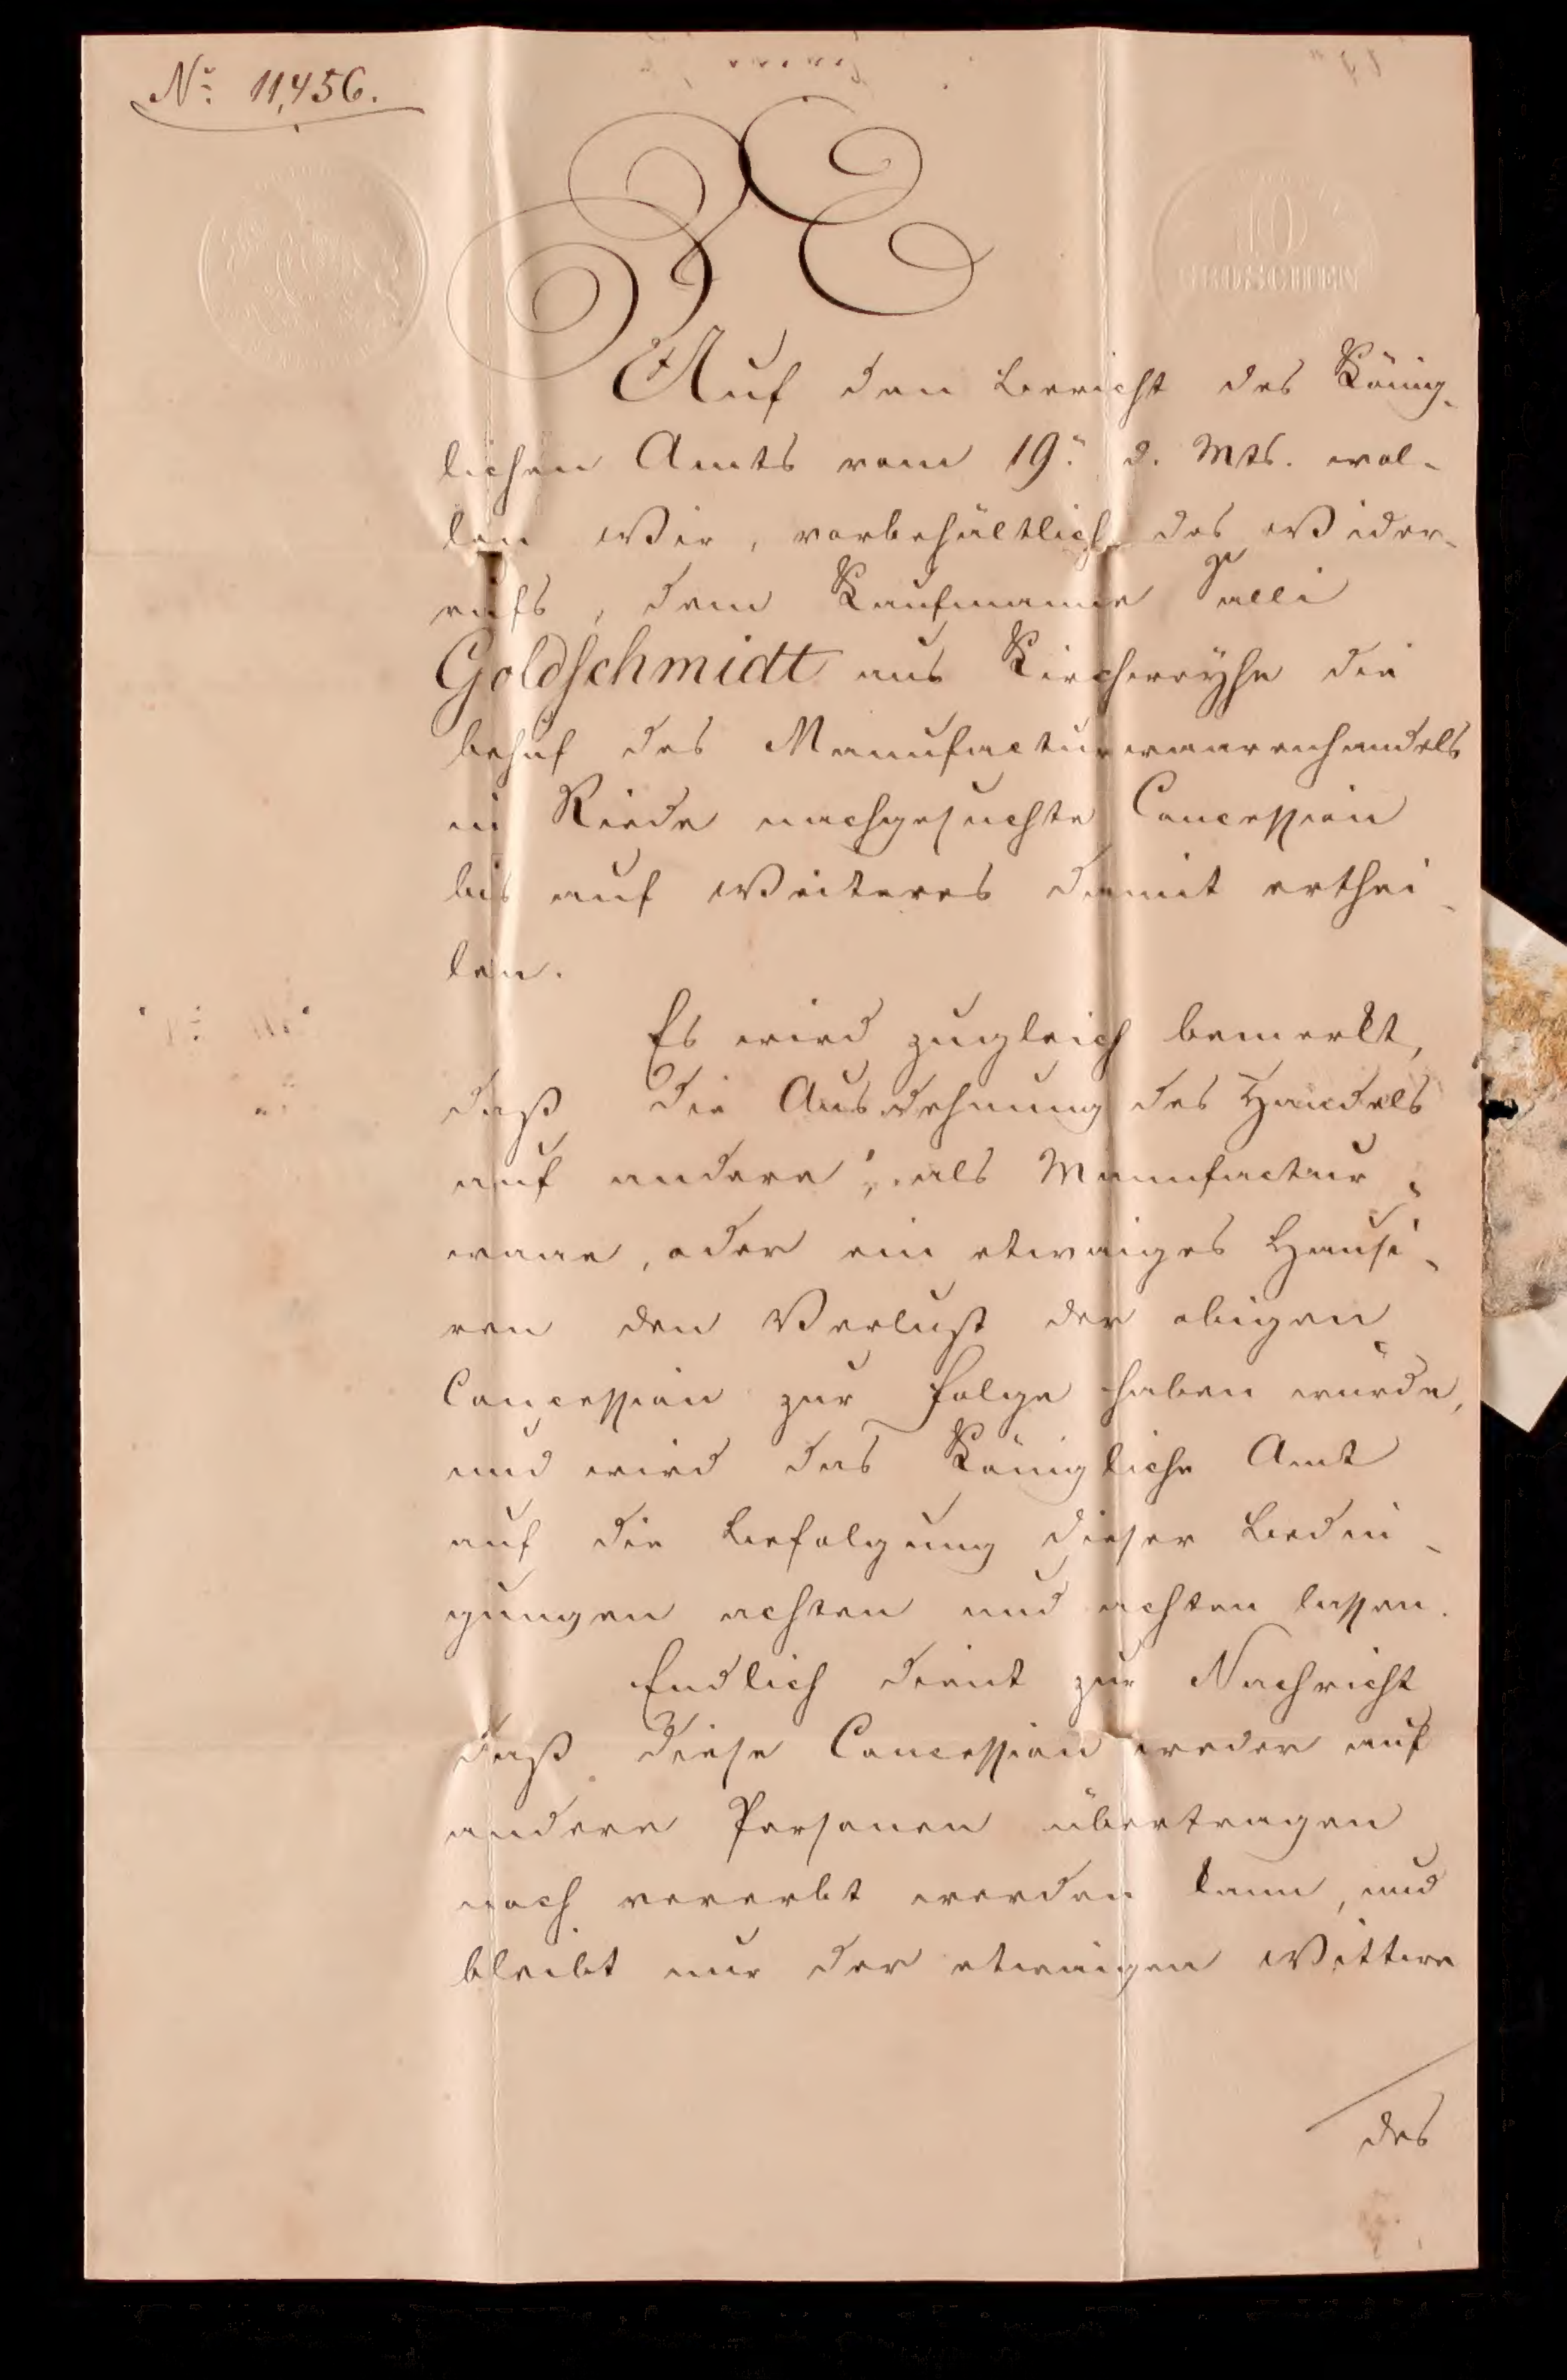 No. 11,456.
10
GROSCHEN
Auf den Bericht des König-
lichen Amts vom 19. d. Mts. wol-
len Wir, vorbehältlich des Wider-
rufs, dem Kaufmanne Salli
Goldschmidt aus Kirchweyhe die
behuf des Manufacturwaarenhandels
in Riede nachgesuchte Concession
bis auf Weiteres damit erthei-
len.
Es wird zugleich bemerkt,
daß die Ausdehnung des Handels
auf andere, als Manufactur-
waare, oder ein etwaiges Hausi-
ren den Verlust der obigen
Concession zur Folge haben würde,
und wird das Königliche Amt
auf die Befolgung dieser Bedin-
gungen achten und achten lassen.
Endlich dient zur Nachricht
daß diese Concession weder auf
andere Personen übertragen
noch vererbt werden kann, und
bleibt nur der etwaigen Wittwe
des